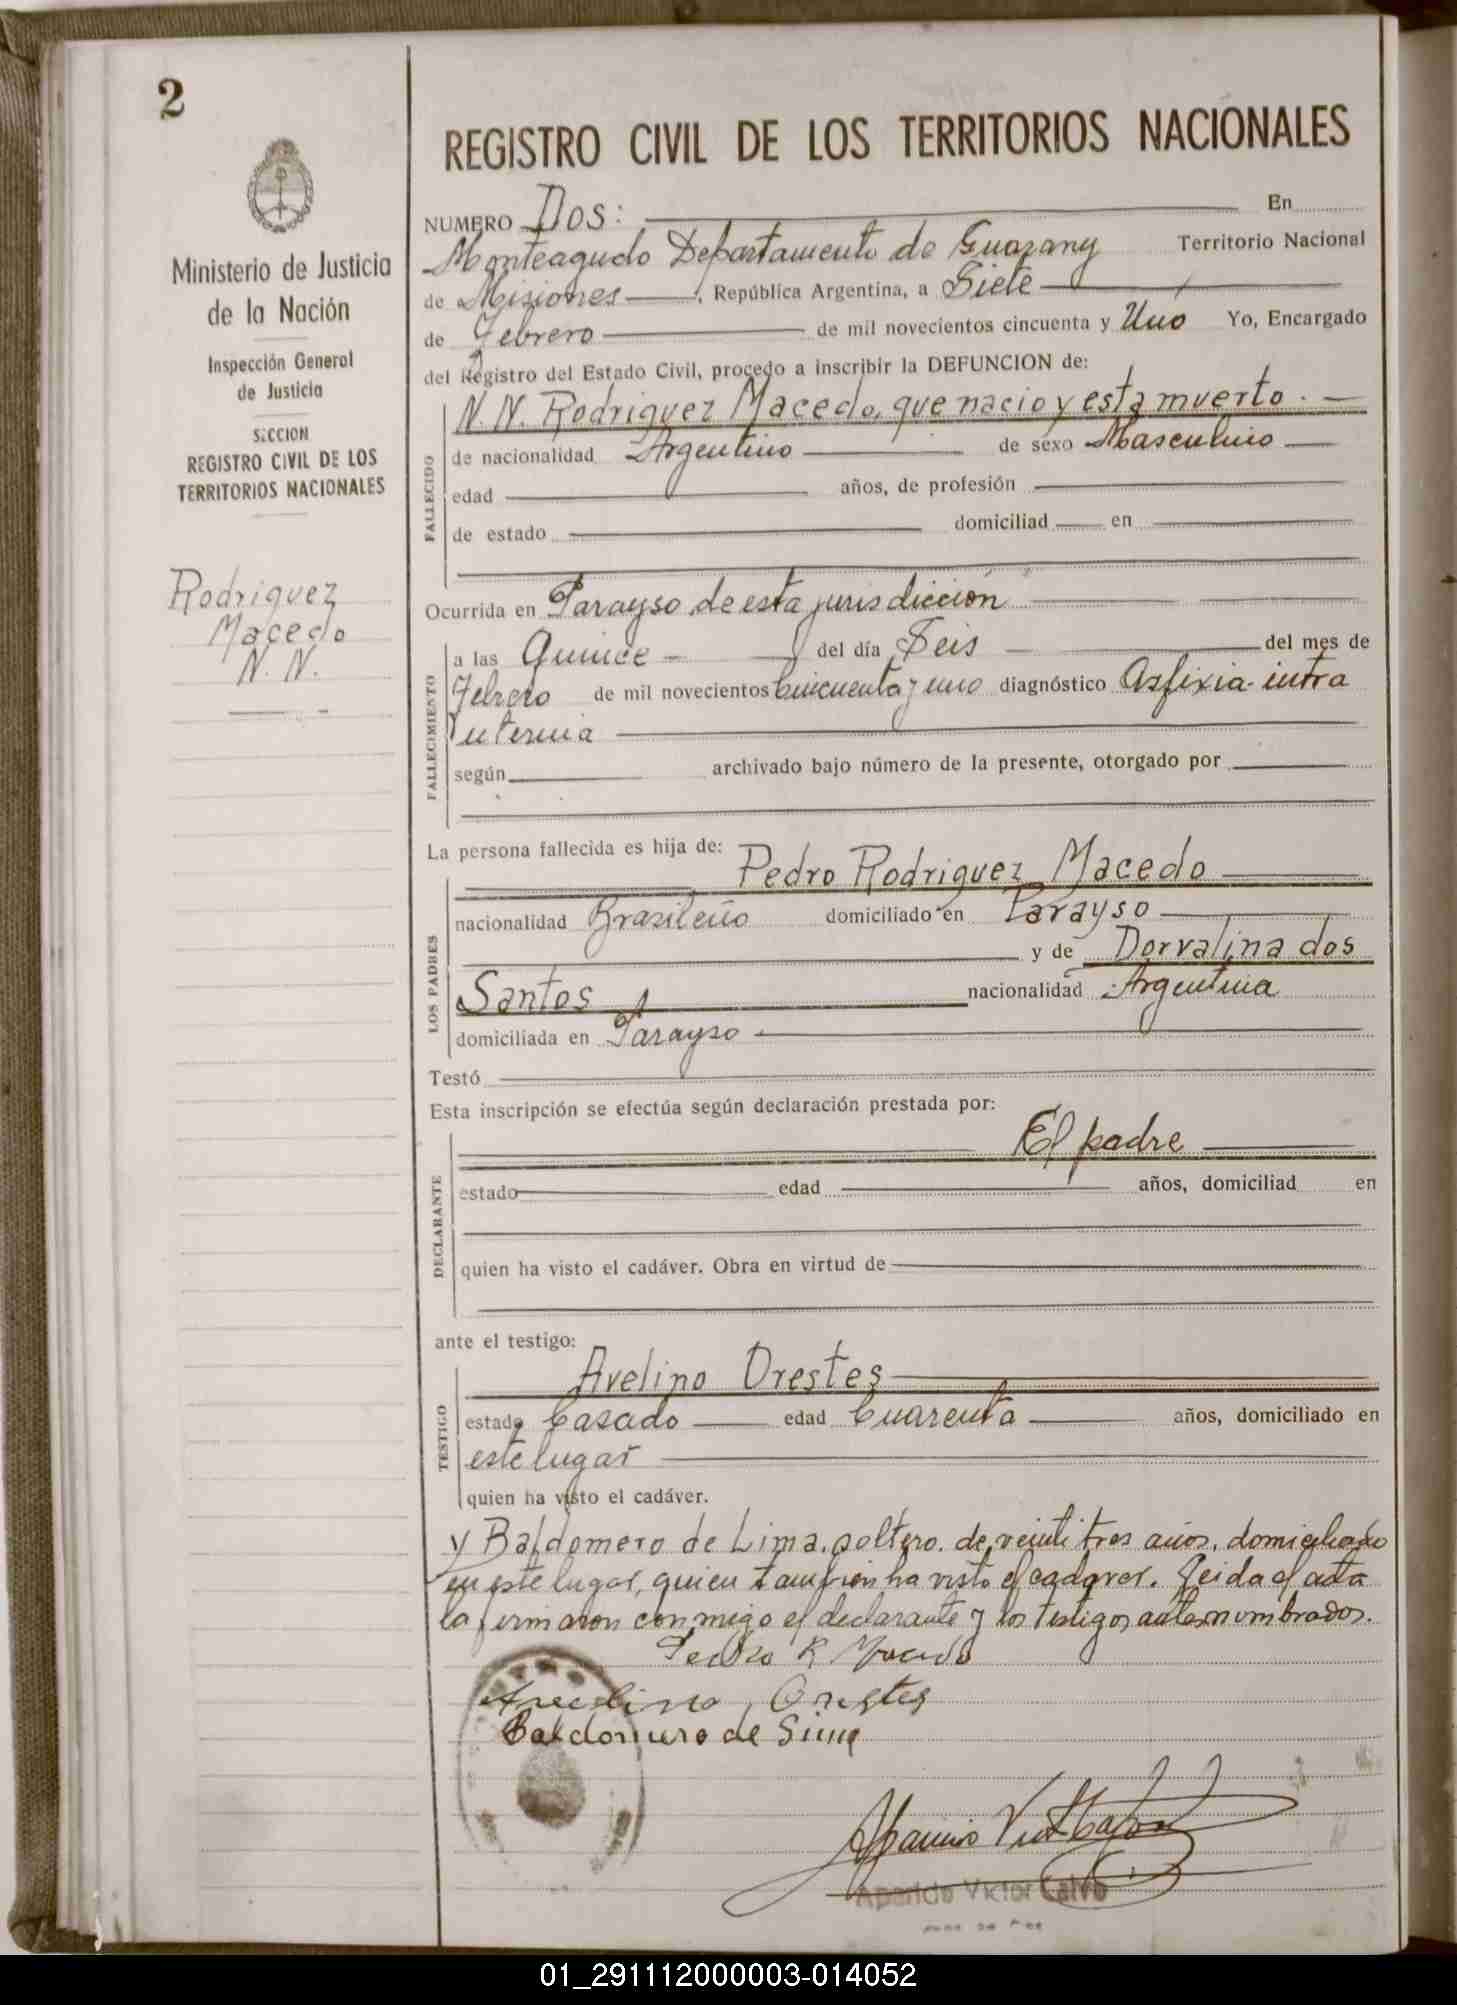 2
Ministerio de Justicia
de la Nación
Inspección General
de Justicia
SECCION
REGISTRO CIVIL DE LOS
TERRITORIOS NACIONALES
Rodriguez
Macedo
N. N.
REGISTRO CIVIL DE LOS TERRITORIOS NACIONALES
NUMERO Dos: En
Monteagudo Departamento de Guarany Territorio Nacional
de Misiones, República Argentina, a Siete
de Febrero de mil novecientos cincuenta y Uno Yo, Encargado
del Registro del Estado Civil, procedo a inscribir la DEFUNCION de:
N. N. Rodriguez Macedo, que nacio y esta muerto.
FALLECIDO
de nacionalidad Argentino de sexo Masculino
edad años, de profesión
de estado domiciliad en
Ocurrida en Parayso de esta jurisdicción
FALLECIMIENTO
a las Quince del día Seis del mes de
Febrero de mil novecientos Cincuenta y uno diagnóstico Asfixia intra
uterina
según archivado bajo número de la presente, otorgado por
La persona fallecida es hija de:
Pedro Rodriguez Macedo
LOS PADRES
nacionalidad Brasileño domiciliado en Parayso
y de Dorvalina dos
Santos nacionalidad Argentina
domiciliada en Parayso
Testó
Esta inscripción se efectúa según declaración prestada por:
El padre
DECLARANTE
estado edad años, domiciliad en
quien ha visto el cadáver. Obra en virtud de
ante el testigo:
Avelino Orestes
TESTIGO
estado Casado edad Cuarenta años, domiciliado en
este lugar
quien ha visto el cadáver.
y Baldomero de Lima, soltero, de veinti tres años, domiciliado
en este lugar, quien tambien ha visto el cadaver. Leida el acta
la firmaron conmigo el declarante y los testigos antes nombrados.
Pedro R Macedo
Avelino Orestes
Baldomero de Lima
Aparicio Victor Calvo
01_291112000003-014052